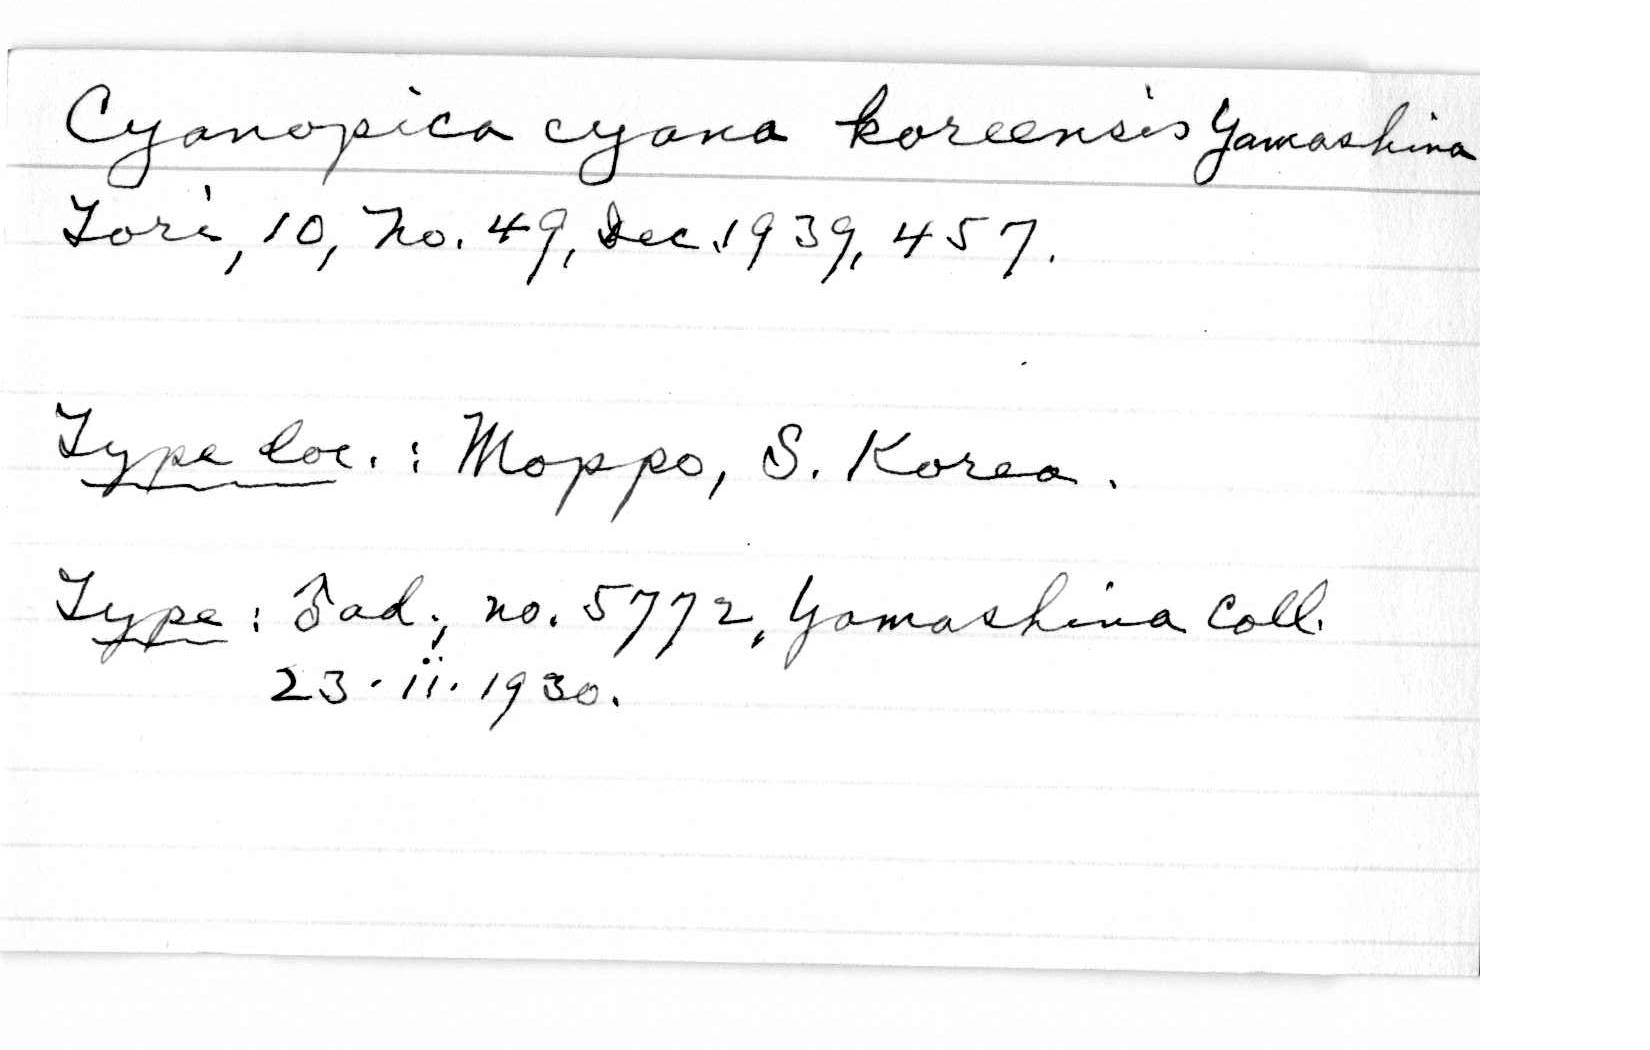 Cyanopica cyana koreensis Yamashina
Tori, 10, No. 49, Dec. 1939, 457.
Type loc. : Moppo, S. Korea.
Type : ♂ ad., no. 5772, Yamashina Coll.
23 · ii · 1930.